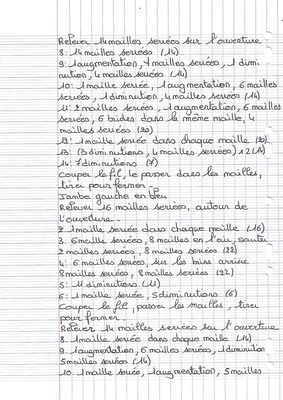 Relever 14 mailles serrées sur l'ouverture
8: 14 mailles serrées (14)
9: 1 augmentation, 7 mailles serrées, 1 dimi
nution, 4 mailles serrées (14)
10: 1 maille serrée, 1 augmentation, 6 mailles
serrées, 1 diminution, 4 mailles serrées (14)
11: 2 mailles serrées, 1 augmentation, 6 mailles
serrées, 6 brides dans la même maille, 4
mailles serrées (20)
12: 1 maille serrée dans chaque maille (20)
13: (3 diminutions, 4 mailles serrées) x2 (14)
14: 7 diminutions (7)
Couper le fil, le passer dans les mailles,
tirer pour fermer.
Jambe gauche en bleu
Relever 16 mailles serrées, autour de
l'ouverture.
2: 1 maille serrée dans chaque maille (16)
3: 6 mailles serrées, 8 mailles en l'air, sauter
2 mailles serrées, 8 mailles serrées (22)
4: 6 mailles serrées sur les brins arrière
8 mailles serrées, 8 mailles serrées (22)
5: 11 diminutions (11)
6: 1 maille serrée, 5 diminutions (6)
Couper le fil, passer les mailles, tirer
pour fermer.
Relever 14 mailles serrées sur l'ouverture
8: 1 maille serrée dans chaque maille (14)
9: 1 augmentation, 6 mailles serrées, 1 diminution
5 mailles serrées (14)
10: 1 maille serrée, 1 augmentation, 5 mailles